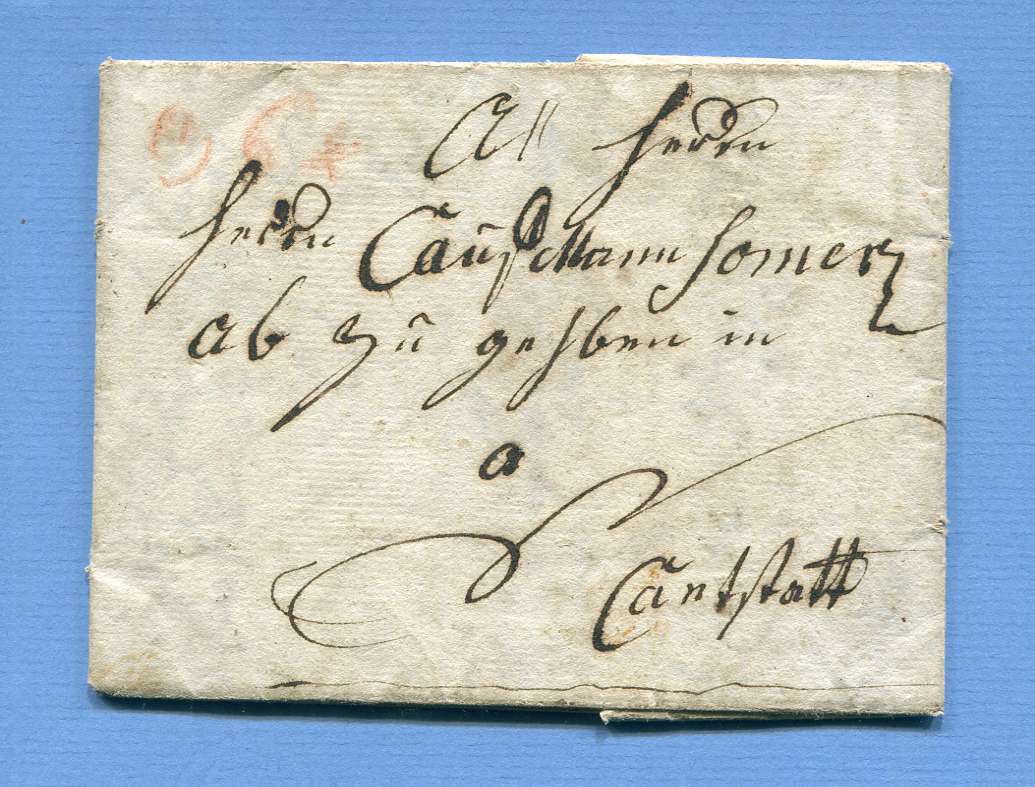 Herrn
Herrn Caufmann Somer
ab zu gehben in
a
Cantstatt